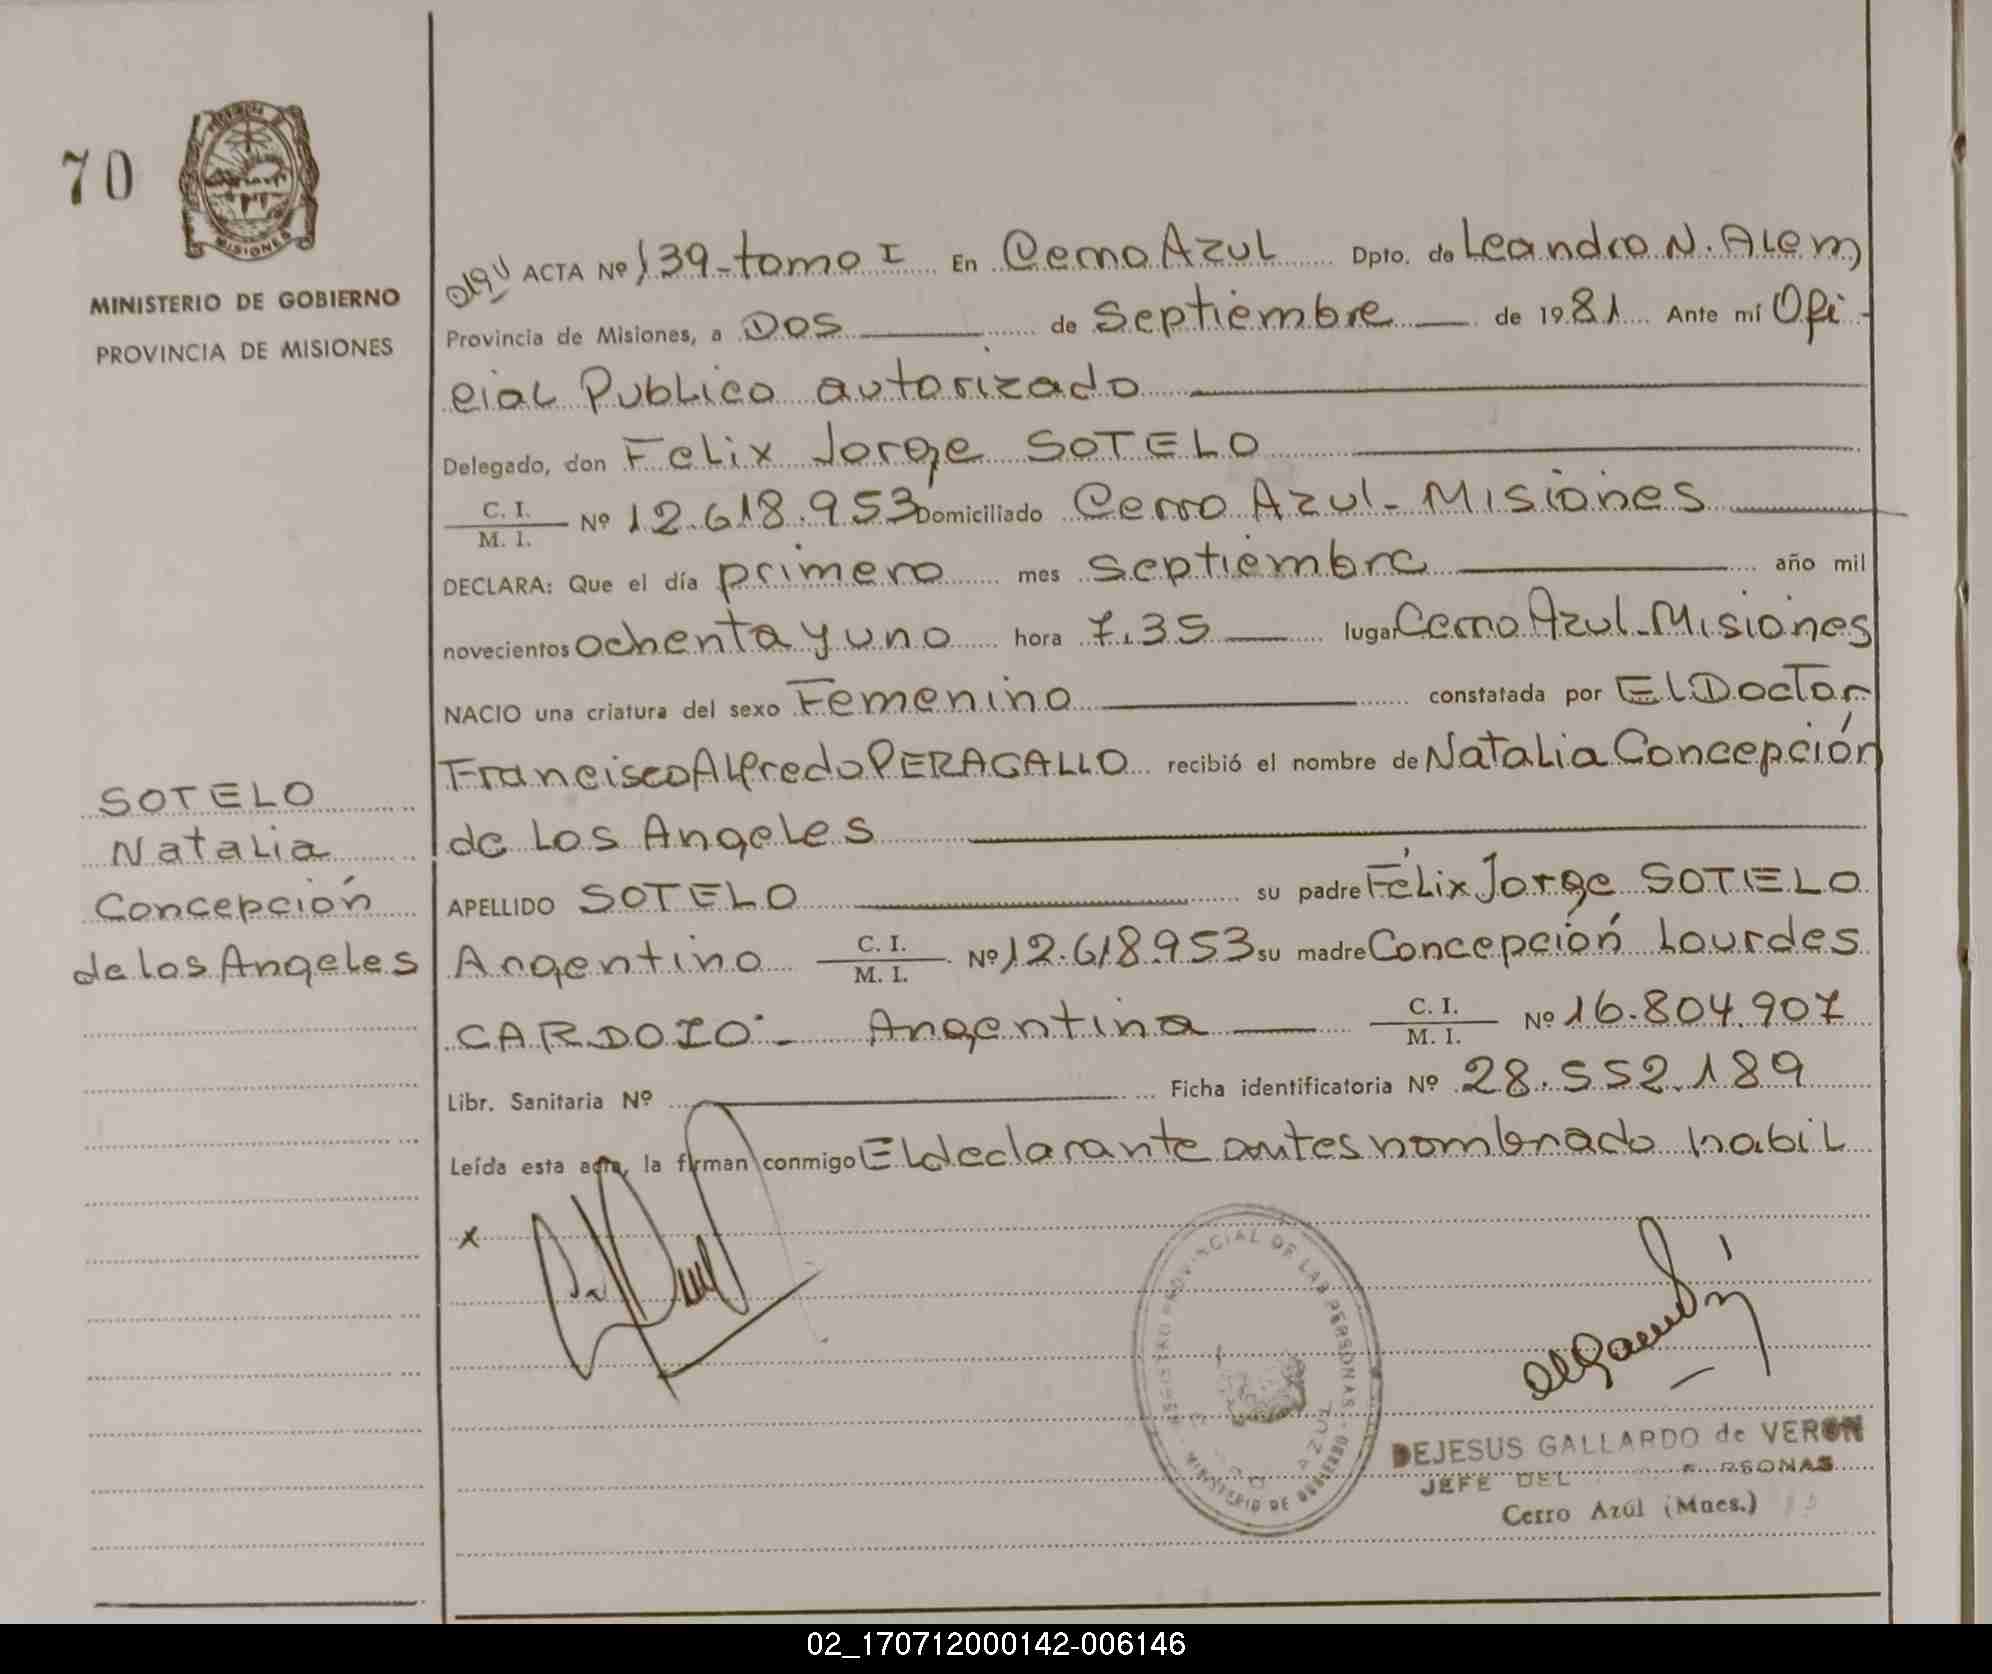 70
PROVINCIA DE
MISIONES
MINISTERIO DE GOBIERNO
PROVINCIA DE MISIONES
SOTELO
Natalia
Concepción
de los Angeles
ACTA Nº 139-tomo I En Cerro Azul Dpto. de Leandro N. Alem
Provincia de Misiones, a Dos de Septiembre de 1981 Ante mí Ofi-
cial Publico autorizado
Delegado, don Felix Jorge SOTELO
C. I.
M. I. Nº 12.618.953 Domiciliado Cerro Azul - Misiones
DECLARA: Que el día primero mes septiembre año mil
novecientos ochenta y uno hora 7.35 lugar Cerro Azul - Misiones
NACIO una criatura del sexo Femenino constatada por El Doctor
Francisco Alfredo PERAGALLO recibió el nombre de Natalia Concepción
de los Angeles
APELLIDO SOTELO su padre Félix Jorge SOTELO
Argentino C. I.
M. I. Nº 12.618.953 su madre Concepción Lourdes
CARDOZO - Argentina C. I.
M. I. Nº 16.804.907
Libr. Sanitaria Nº Ficha identificatoria Nº 28.552.189
Leída esta acta, la firman conmigo El declarante antes nombrado habil
x
REGISTRO PROVINCIAL DE LAS PERSONAS
MINISTERIO DE GOBIERNO
AZUL
DEJESUS GALLARDO de VERON
JEFE DEL
Cerro Azúl (Mnes.)
02_170712000142-006146